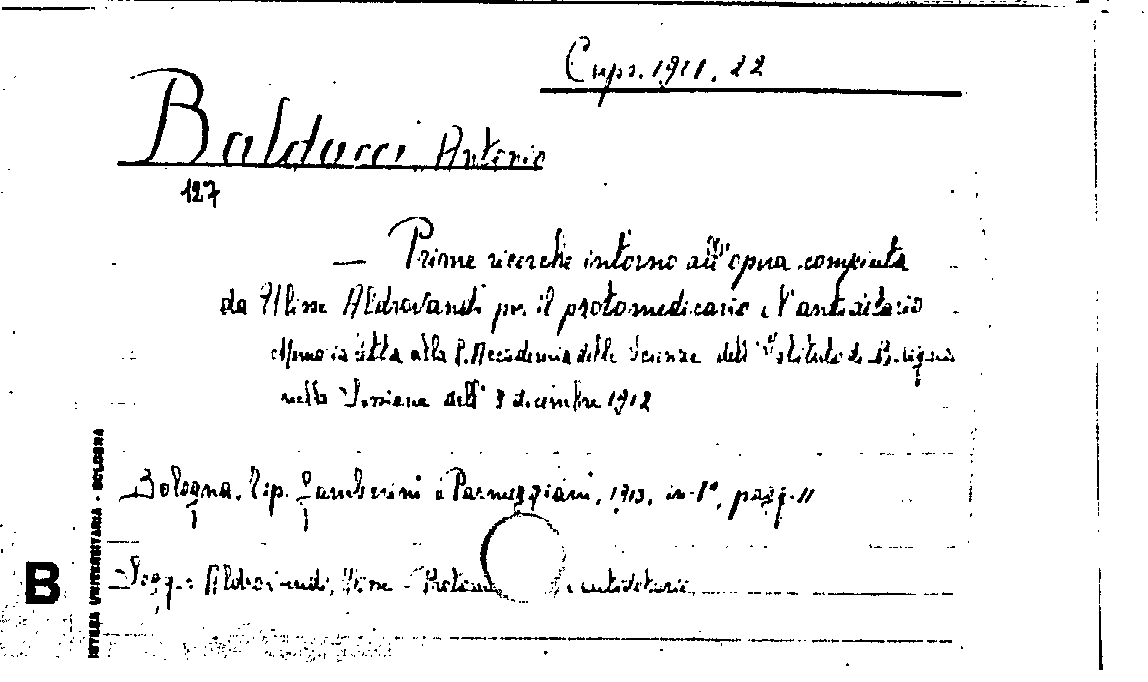 Caps. 1911. 22
Baldacci Antonio
127
— Prime ricerche intorno all'opera compiuta
da Ulisse Aldrovandi per il protomedicato e l'antidotario
Memoria letta alla R. Accademia delle Scienze dell'Istituto di Bologna
nella Sessione dell' 8 dicembre 1912
Bologna, Tip. Gamberini e Parmeggiani, 1913, in-8°, pagg. 11
Sogg.: Aldrovandi, Ulisse - antidotario
B
UNIVERSITARIA - BOLOGNA